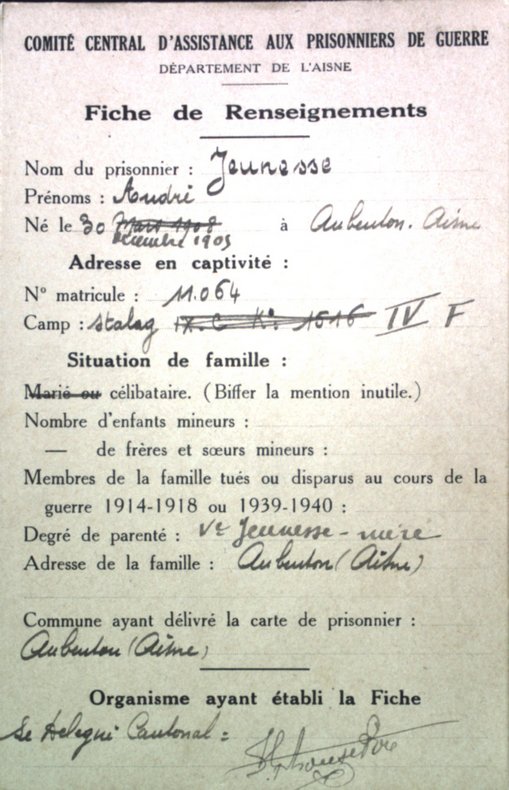 COMITÉ CENTRAL D'ASSISTANCE AUX PRISONNIERS DE GUERRE
DÉPARTEMENT DE L'AISNE
Fiche de Renseignements
Nom du prisonnier : Jeunesse
Prénoms : André
Né le 30 Mars 1908 à Aubenton. Aisne
décembre 1909
Adresse en captivité :
N° matricule : 11.064
Camp : Stalag IX.C K° 1516 IV F
Situation de famille :
Marié ou célibataire. (Biffer la mention inutile.)
Nombre d'enfants mineurs :
— de frères et sœurs mineurs :
Membres de la famille tués ou disparus au cours de la
guerre 1914-1918 ou 1939-1940 :
Degré de parenté : Ve Jeunesse - mère
Adresse de la famille : Aubenton (Aisne)
Commune ayant délivré la carte de prisonnier :
Aubenton (Aisne)
Organisme ayant établi la Fiche
Le Délegué Cantonal =